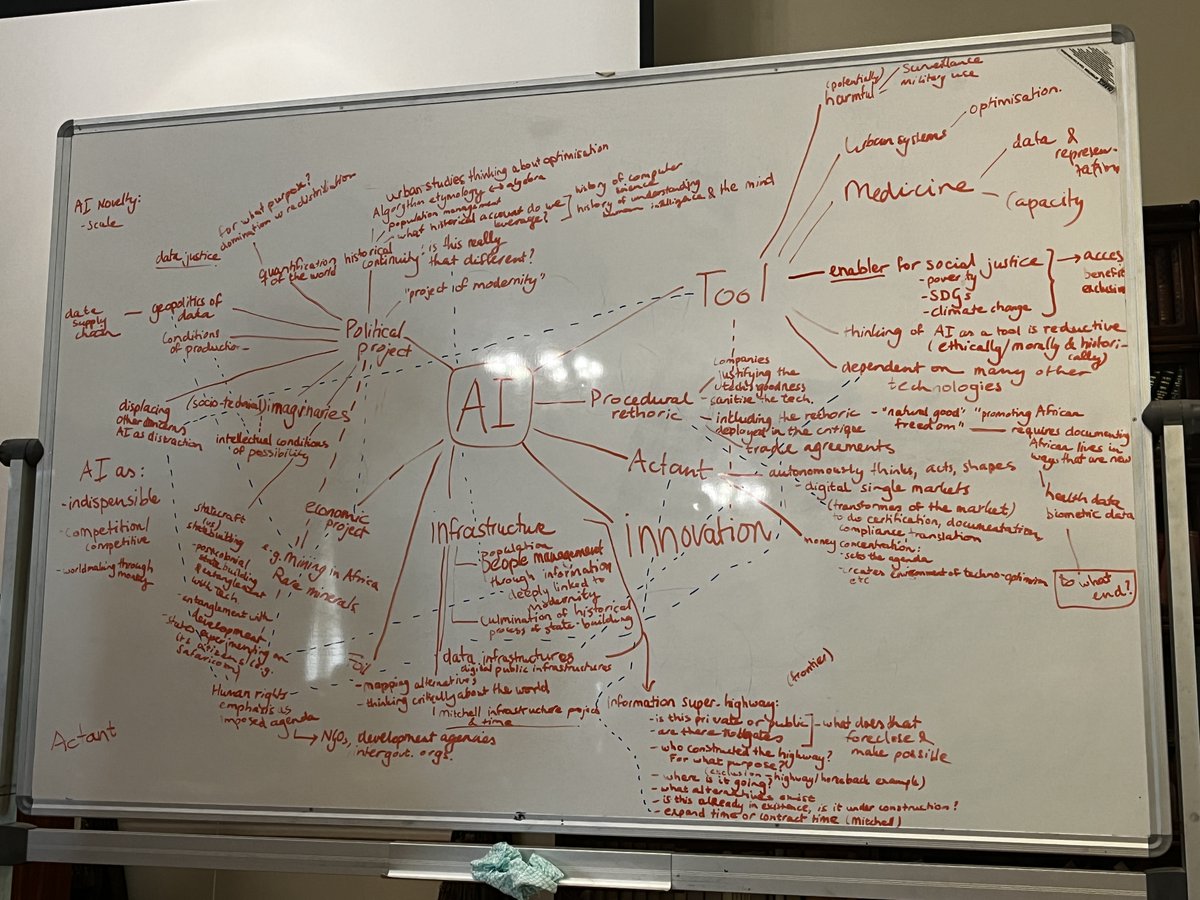 AI Novelty:
- scale
data justice
for what purpose?
domination vs redistribution
quantification
of the world
historical
continuity: is this really
that different?
urban studies thinking about optimisation
Algorithm etymology ↔ algebra
population management
- what historical account do we
leverage?
history of computer
science
history of understanding
human intelligence & the mind
"project of modernity"
data
supply
chain
geopolitics of
data
Conditions
of production
Political
Project
displacing
other demands
AI as distraction
(socio-technical) imaginaries
intellectual conditions
of possibility
AI as:
- indispensible
- competition/
competitive
- worldmaking through
money
statecraft
(vs)
statebuilding
- postcolonial
state building
& entanglement
with tech
- entanglement with
development
- states experimenting on
its citizens (e.g.
Safaricom)
economic
project
e.g. Mining in Africa
Rare minerals
oil
Human rights
emphasis as
imposed agenda
→ NGOs, development agencies
intergovt. orgs.
Actant
AI
Infrastructure
- population
people management
through information
deeply linked to
modernity
- culmination of historical
process of state-building
data infrastructures
digital public infrastructures
- mapping alternatives
- thinking critically about the world
(Mitchell infrastructure project
& time
Tool
(potentially)
harmful
surveillance
military use
Urban systems
optimisation.
Medicine
data &
represen-
tation
Capacity
enabler for social justice
- poverty
- SDGs
- climate change
→ acces
benefit
exclusion
thinking of AI as a tool is reductive
(ethically/morally & histori-
cally)
dependent on many other
technologies
Procedural
rethoric
companies
justifying the
tech's goodness
- sanitise the tech.
- including the rethoric
deployed in the critique
- "natural good"
freedom"
"promoting African
requires documenting
African lives in
ways that are new
health data
biometric data
to what
end?
trade agreements
Actant
autonomously thinks, acts, shapes
digital single markets
(transformers of the market)
to do certification, documentation,
compliance translation
money concentration:
- sets the agenda
- creates environment of techno-optimism
etc
innovation
(frontier)
Information super-highway:
- is this private or public
- are there tollgates
- what does that
foreclose &
make possible
- who constructed the highway?
For what purpose?
(exclusion - highway/horseback example)
- where is it going?
- what alternatives exist
- is this already in existence, is it under construction?
- expand time or contract time (Mitchell)